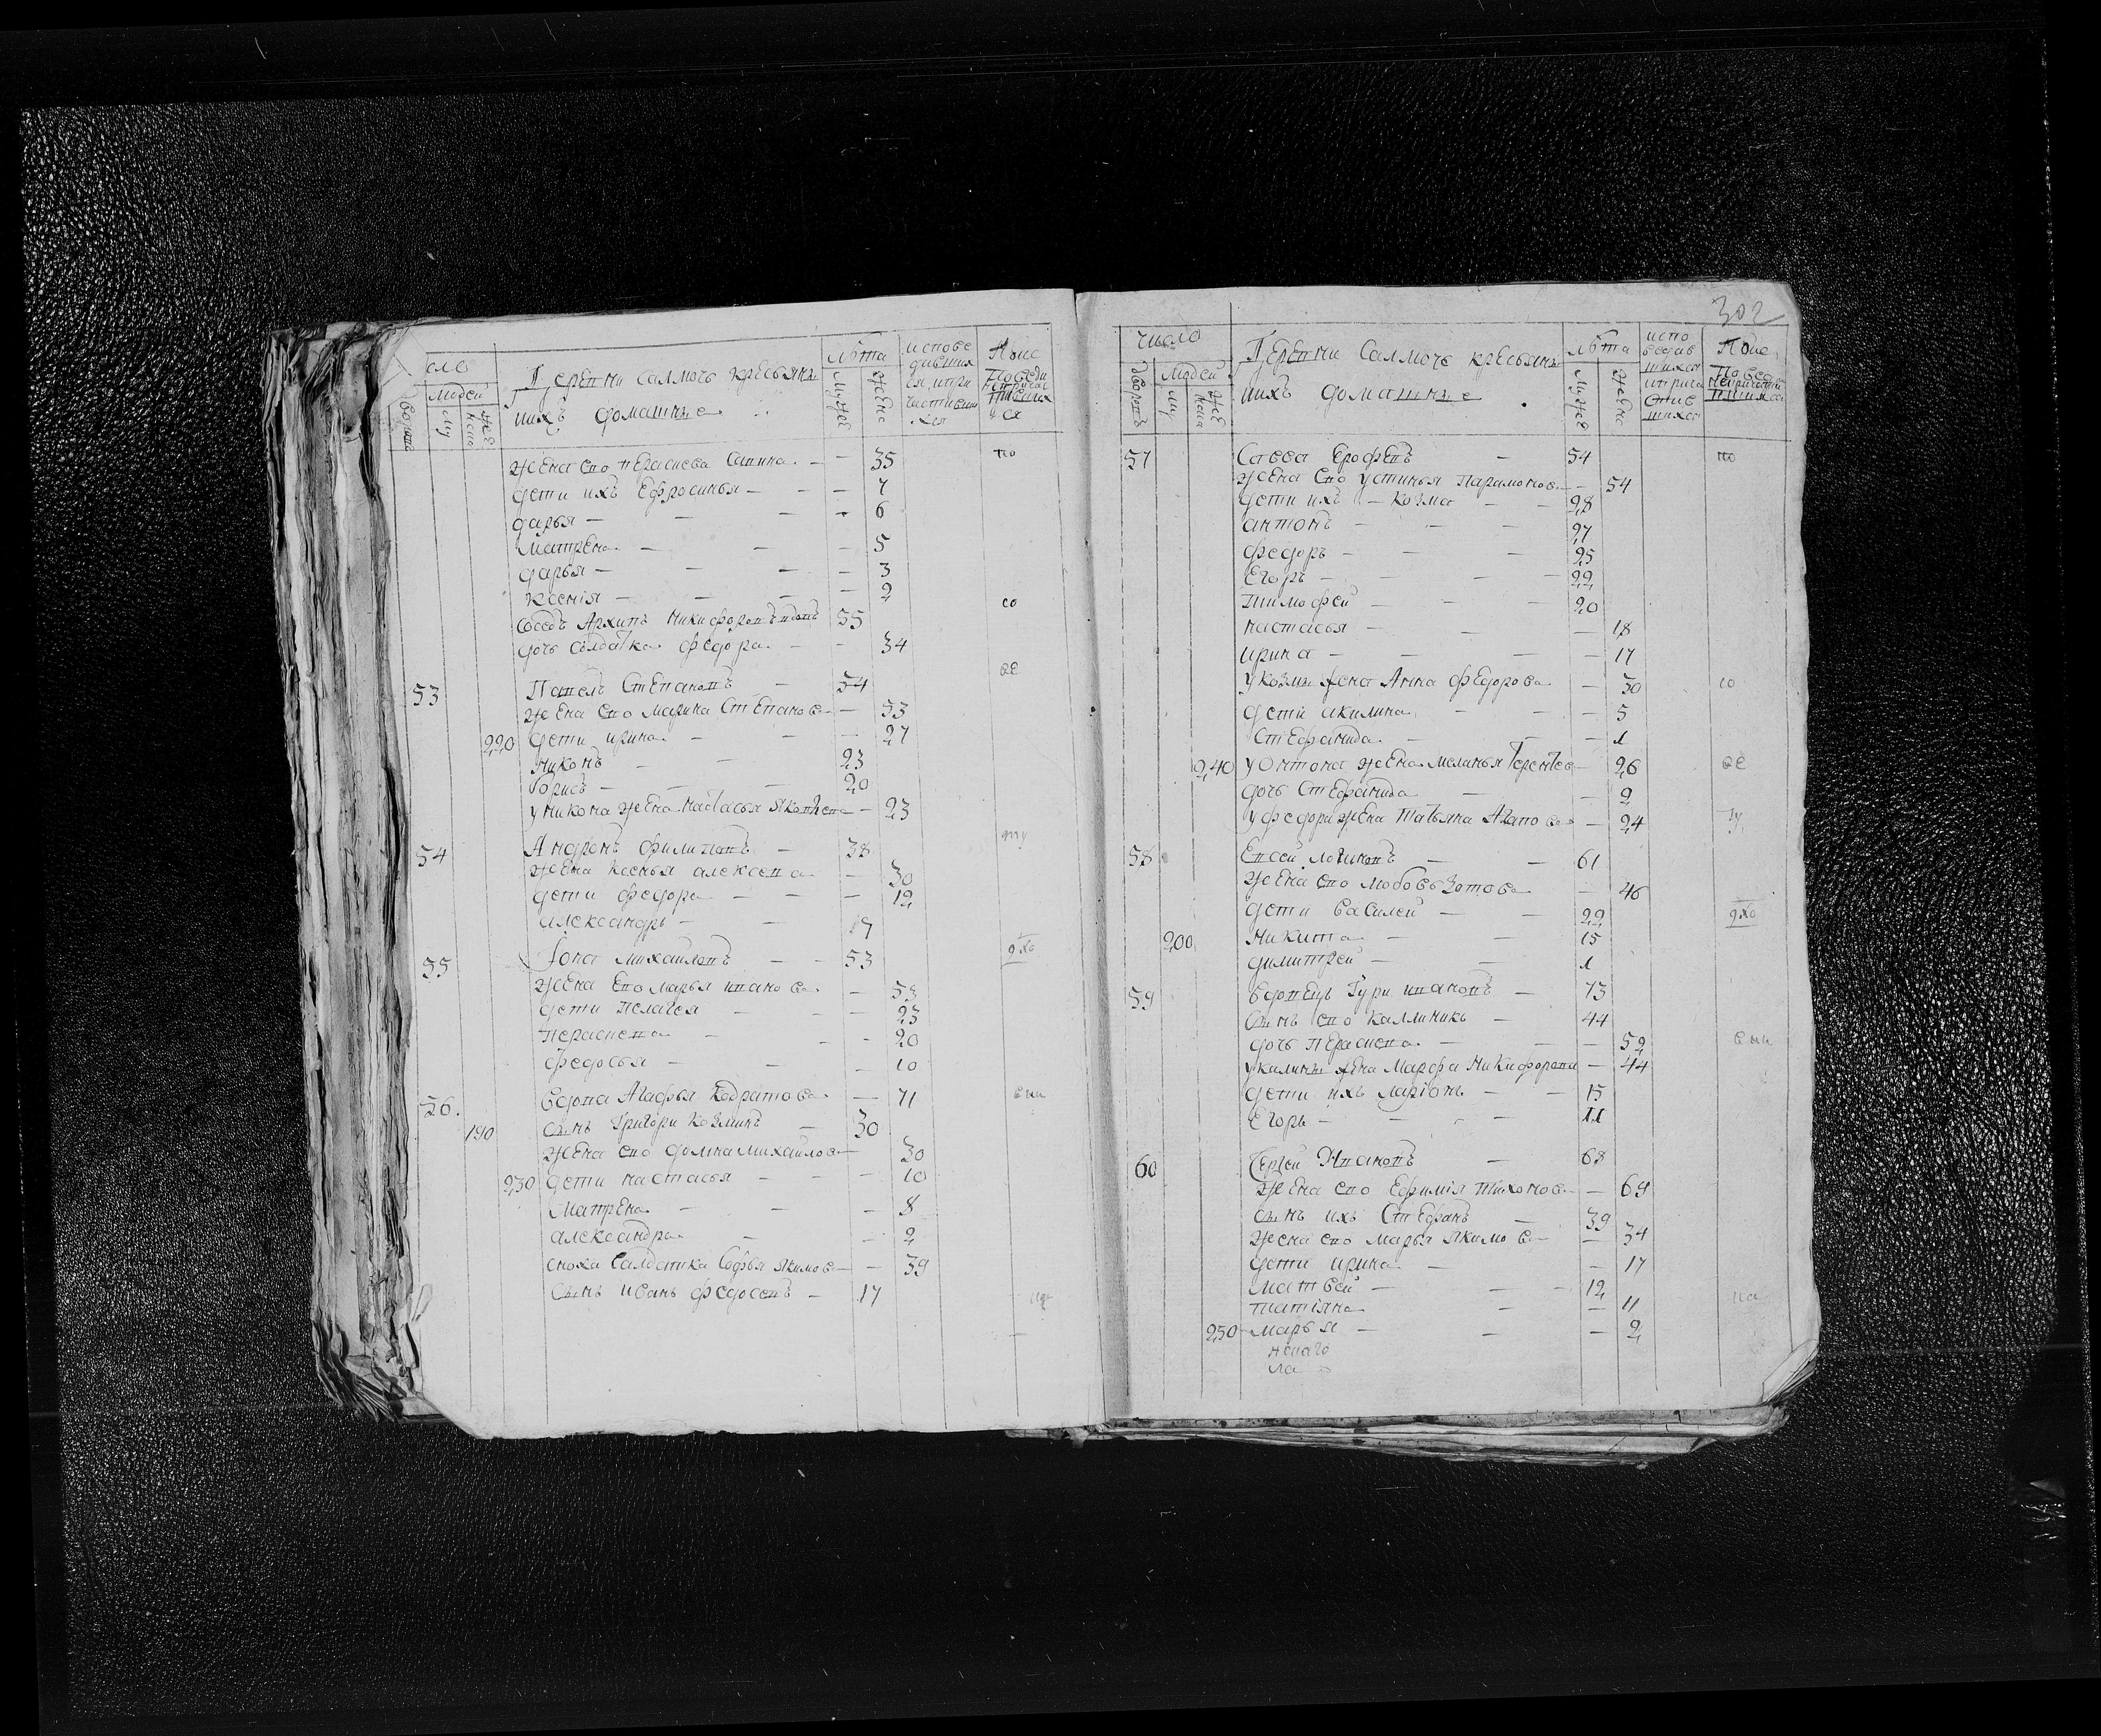 сло
людей
дворовъ
му
жеска
Деревни Салмачь крестьяня
ихъ домашние
лѣта
мужес
женс
испове
давшия
ся ипри
частивши
яся
Кои
исповеди
непричас
тившия
ся
жена ево Парасиева Савина - - 35
дети ихъ Ефросинья - - - 7
дарья - - - - 6
Матрена - - - 5
дарья - - - - 3
Ксения - - - - 2
Соседъ Архипъ Никифоровъ вдовъ 55
дочь солдатка федора - - 34
53 Павелъ Степановъ - 54
жена ево Марина Степанова - 53
220 дети ирина - - - 27
Никонъ - - 23
борисъ - - - 20
у никона жена Настасья Яковлева - 23
54 Андронъ филиповъ - 38
жена Ксенья алексева - 30
дети федора - - - 12
александръ - - 17
55 Иона михаиловъ - - 53
жена ево марья иванова - 53
дети Пелагея - - - 23
Парасиева - - - 20
федосья - - - 10
56. вдова Агафья Кодратова - 71
190 сынъ Григори Козминъ - 30
жена ево домна михаилова - 30
230 дети настасья - - - 10
Матрена - - - 8
александра - - 2
сноха Салдатка Софья якимова - 39
сынъ иванъ федосевъ - 17
302
число
дворовъ
людей
му
жеска
Деревни Салмачь крестьяня
ихъ домашние
лѣта
мужес
женс
испо
ведав
шихся
иприча
стив
шихся
Кои
57 Савва Ерофеевъ - 54
жена ево устинья Парамонова - 54
дети ихъ - Козма - - 28
антонъ - - - 27
федоръ - - - 25
Егоръ - - - 22
тимофей - - - 20
настасья - - - 18
ирина - - - - 17
у козмы жена Анна федорова - 30
дети акилина - - - 5
Стефанида - - 1
240 у онтона жена Меланья Терентева - 26
дочь Стефанида - - 2
у федора жена Татьяна Агапова - 24
58 Евсей логиновъ - - 61
жена ево любовь Зотова - 46
дети василей - - 22
200 Никита - - 15
димитрей - - 1
59 вдовецъ Гури ивановъ - 73
сынъ ево Каллиникъ - 44
дочь Парасиева - - - 52
у калины жена Марфа Никифорова - 44
дети ихъ ларионъ - - 15
Егоръ - - - - 11
60 Сергей Ивановъ - 68
жена ево Ефимия тихонова - 69
сынъ ихъ Стефанъ - 39
жена ево марья якимова - 34
дети ирина - - - 17
Матвей - - - 12
татияна - - 11
250 марья - - - 2